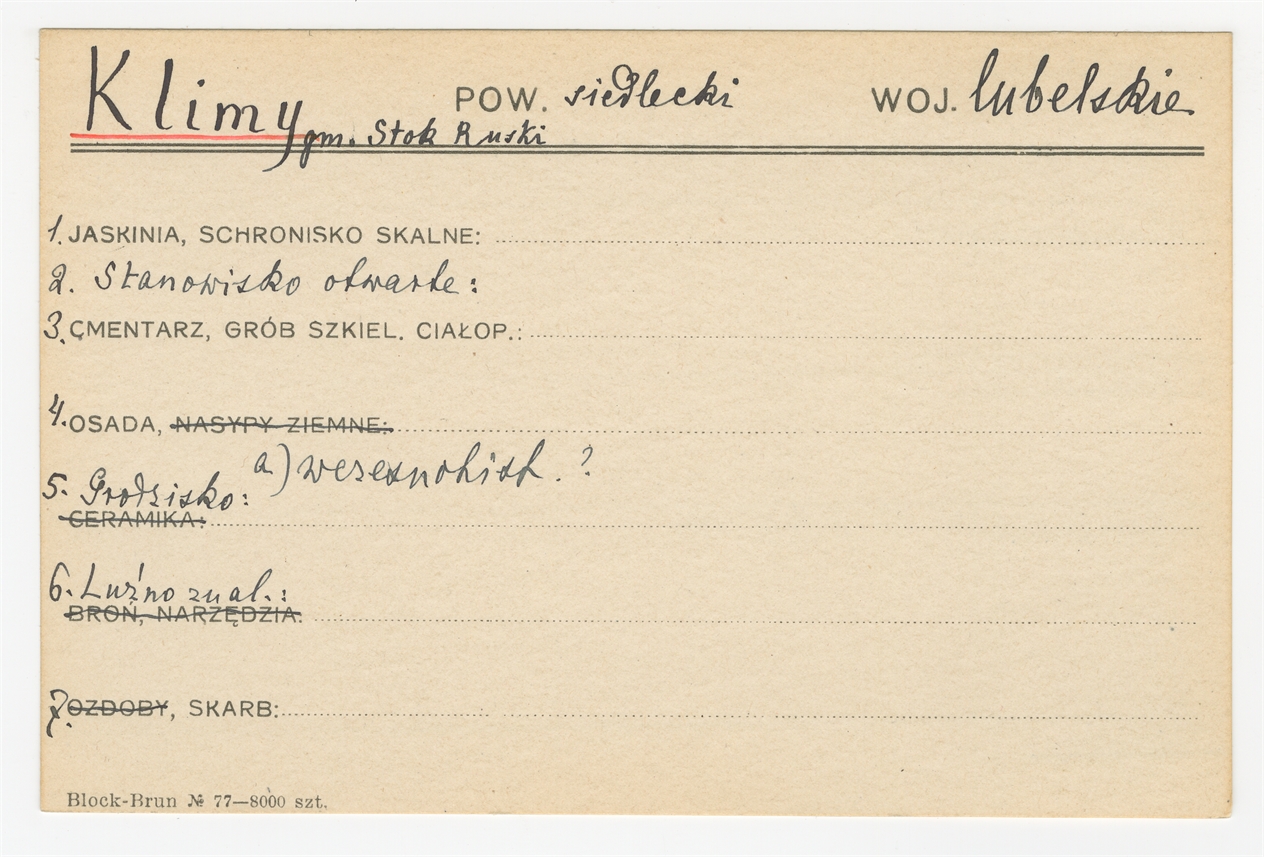 Klimy POW. siedlecki WOJ. lubelskie
gm. Stok Ruski
1. JASKINIA, SCHRONISKO SKALNE:
2. Stanowisko otwarte:
3. CMENTARZ, GRÓB SZKIEL. CIAŁOP.:
4. OSADA, NASYPY ZIEMNE:
a) wczesnohist. ?
5. Grodzisko:
CERAMIKA:
6. Luźno znal.:
BROŃ, NARZĘDZIA:
7. OZDOBY, SKARB:
Block-Brun № 77—8000 szt.